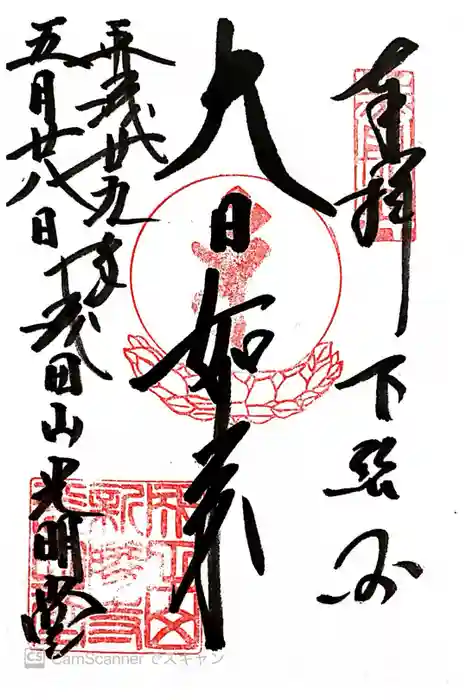 奉拝
下総国
大日如来
平成廿九年
五月廿八日
成田山光明堂
CamScanner でスキャン